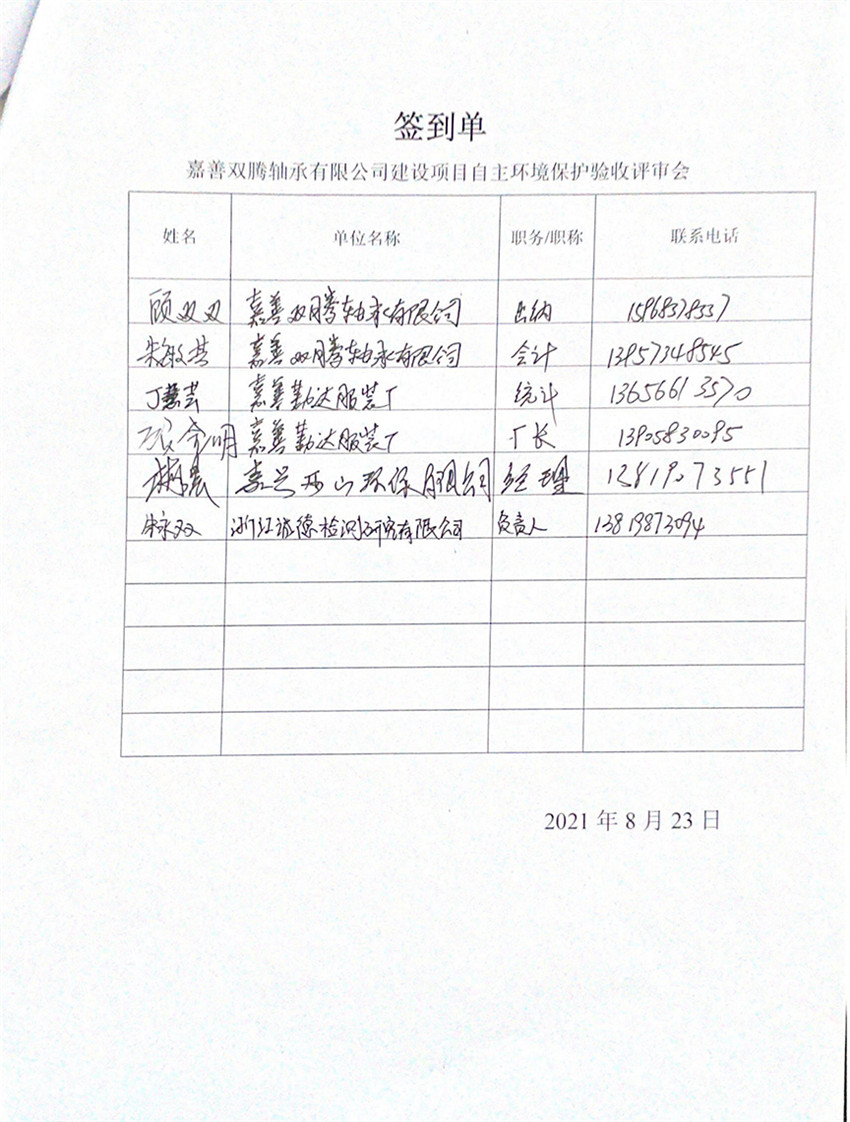 签到单
嘉善双腾轴承有限公司建设项目自主环境保护验收评审会
姓名 单位名称 职务/职称 联系电话
顾双双 嘉善双腾轴承有限公司 出纳
朱敏芸 嘉善双腾轴承有限公司 会计 13957348545
丁慧芸 嘉善勤达服装厂 统计 13656613570
嘉善勤达服装厂 厂长 13905830095
环保有限公司 经理 12819073551
浙江 检测研究有限公司 负责人 13819873094
2021年8月23日